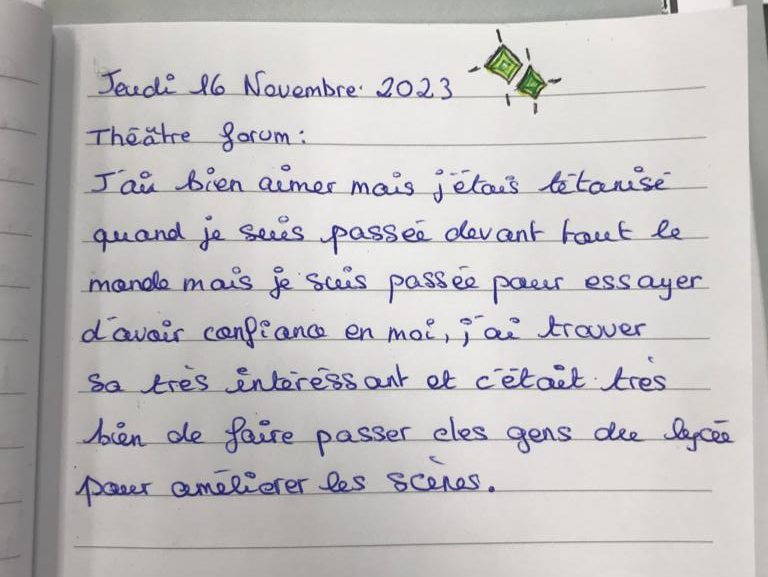 Jeudi 16 Novembre 2023
Théâtre forum :
J'ai bien aimer mais j'étais tétanisé
quand je suis passée devant tout le
monde mais je suis passée pour essayer
d'avoir confiance en moi, j'ai trouver
sa très intéressant et c'était très
bien de faire passer des gens du lycée
pour améliorer les scènes.